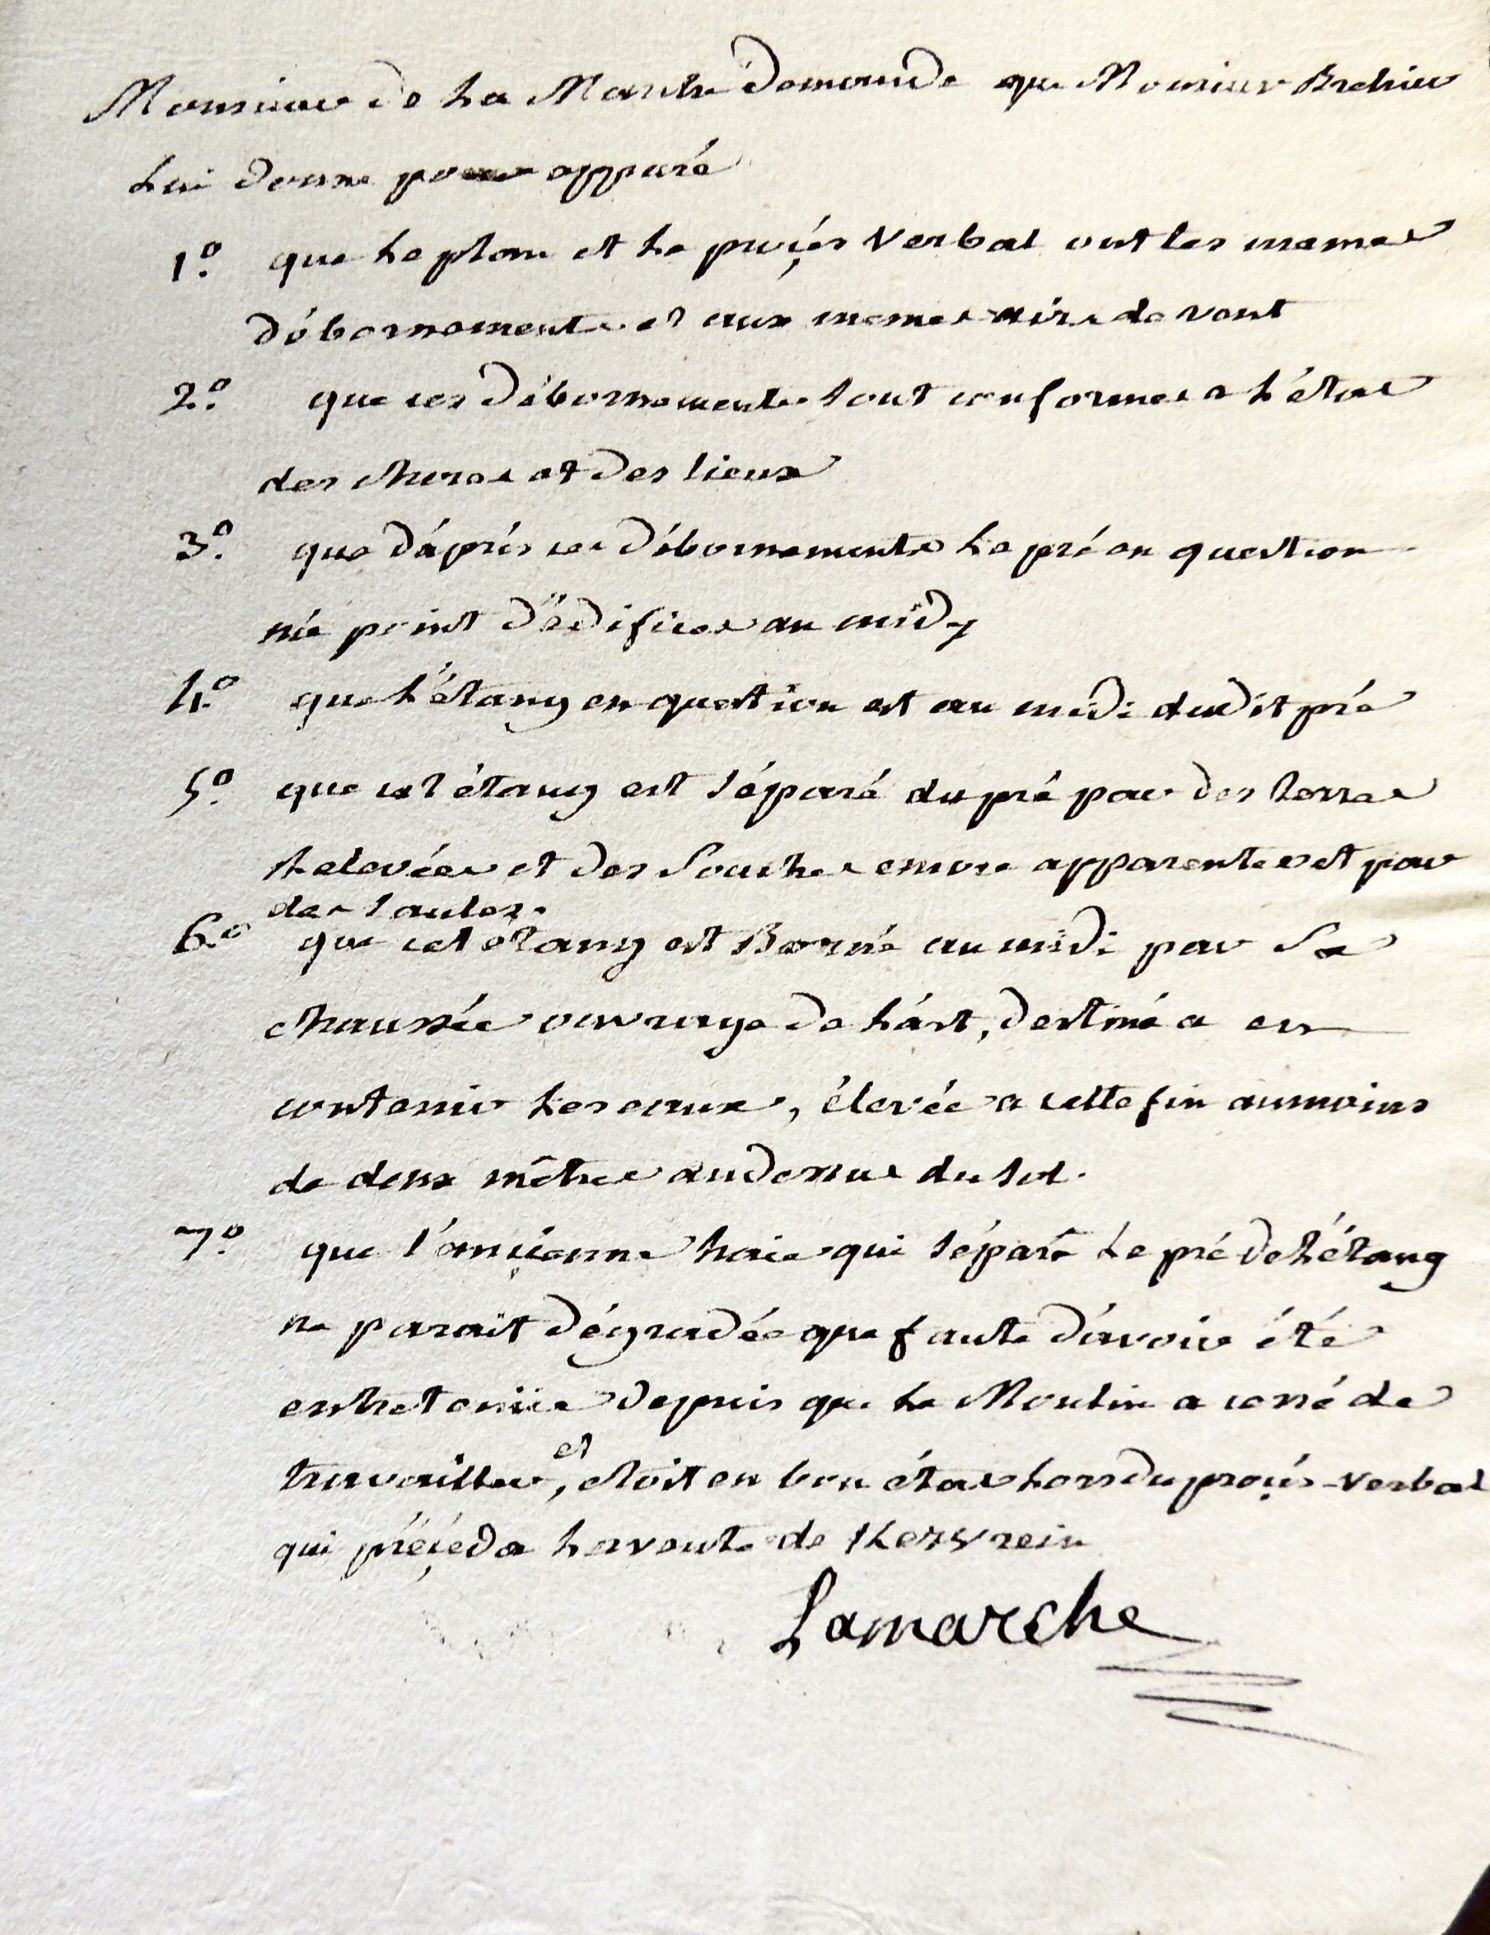 Monsieur de La Marche demande que Monsieur Brehier
Lui donne pour apparé
1o. que Le plan et Le proçès Verbal ont les memes
débornements et aux memes airs de vent
2o. que ces débornements sont conformes a L'état
des choses et des lieux
3o. que d'áprés ces débornements Le pré en question
n'a point d'édifices au midy
4o. que L'étang en question est au midi dudit pré
5o. que cet étang est séparé du pré par des terres
Relevées et des Souches encore apparentes et par
des saules.
6o. que cet étang est Borné au midi par Sa
chaussée ouvrage de L'árt, destiné a en
contenir Les eaux, élevée a cette fin aumoins
de deux mêtres audessus du sol.
7o. que l'ançienne haie qui séparé Le pré de L'étang
ne parait dégradée que faute d'avoir été
entretenüe depuis que Le Moulin a cessé de
travailler, et étoit en bon état Lors du proçés-verbal
qui préçéda La vente de
Lamarche